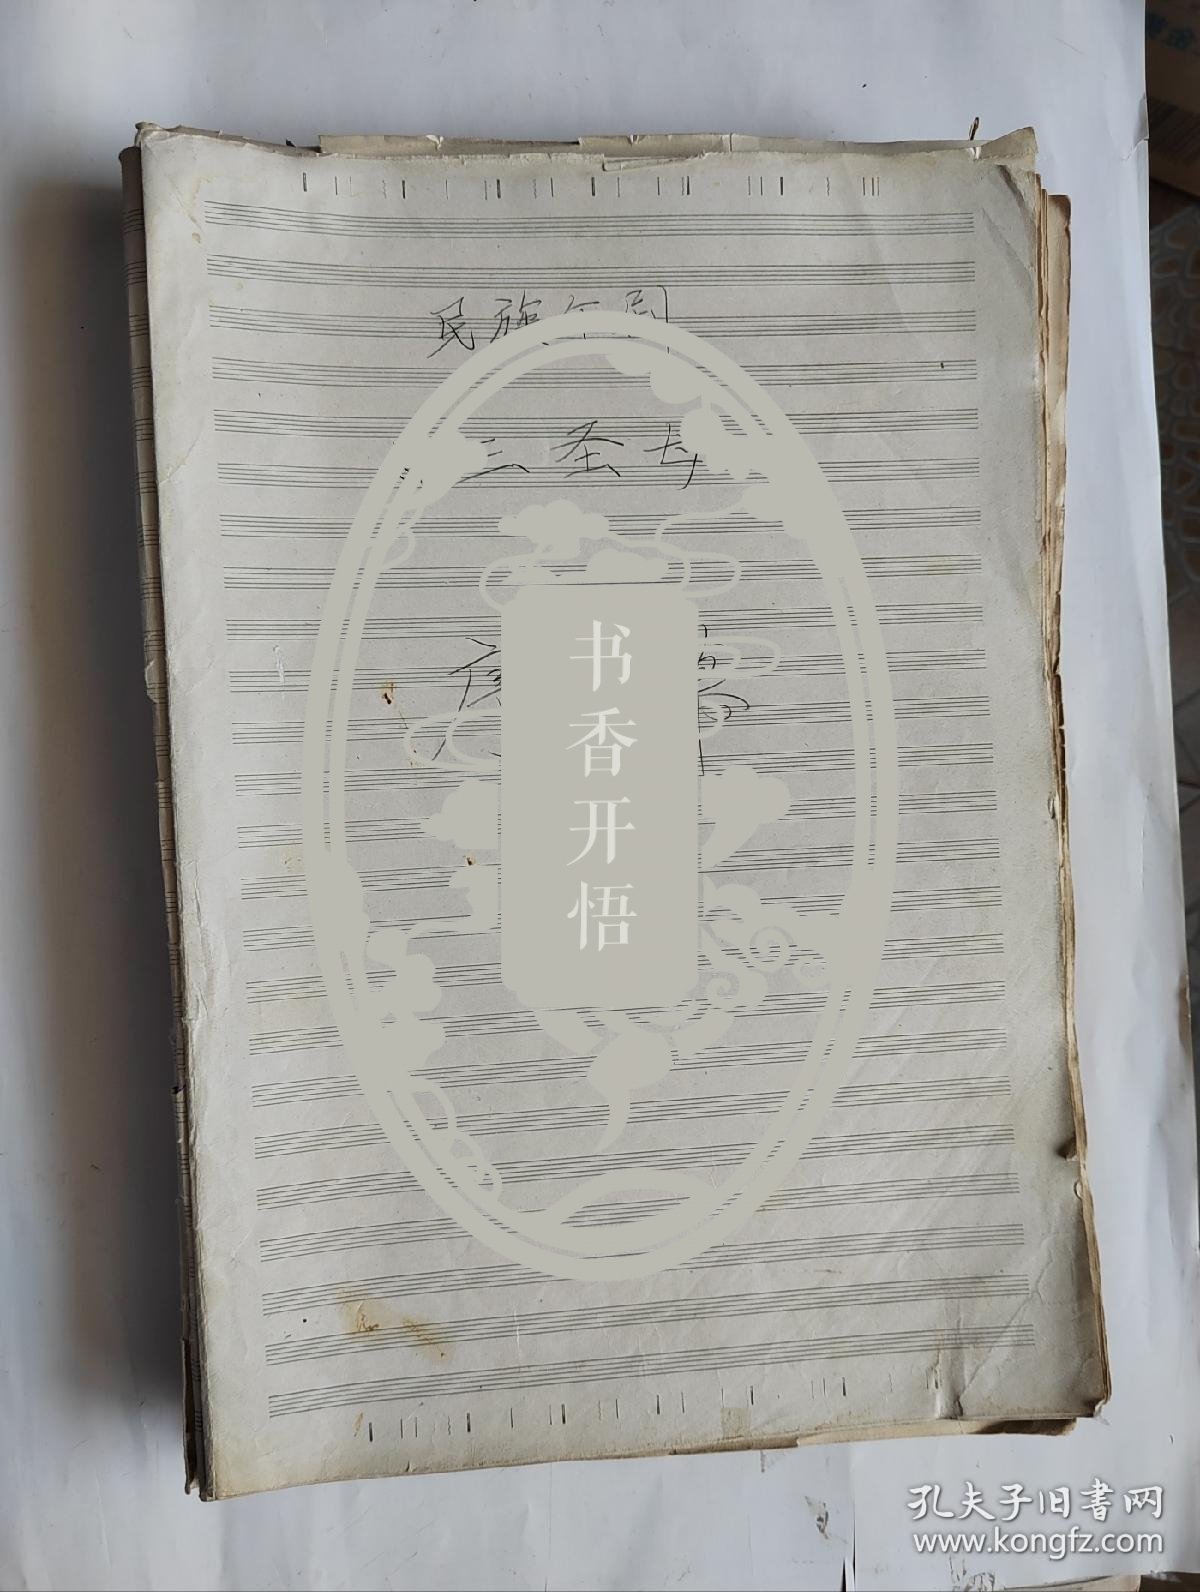 民族舞剧
三圣母
书香开悟
孔夫子旧书网
www.kongfz.com